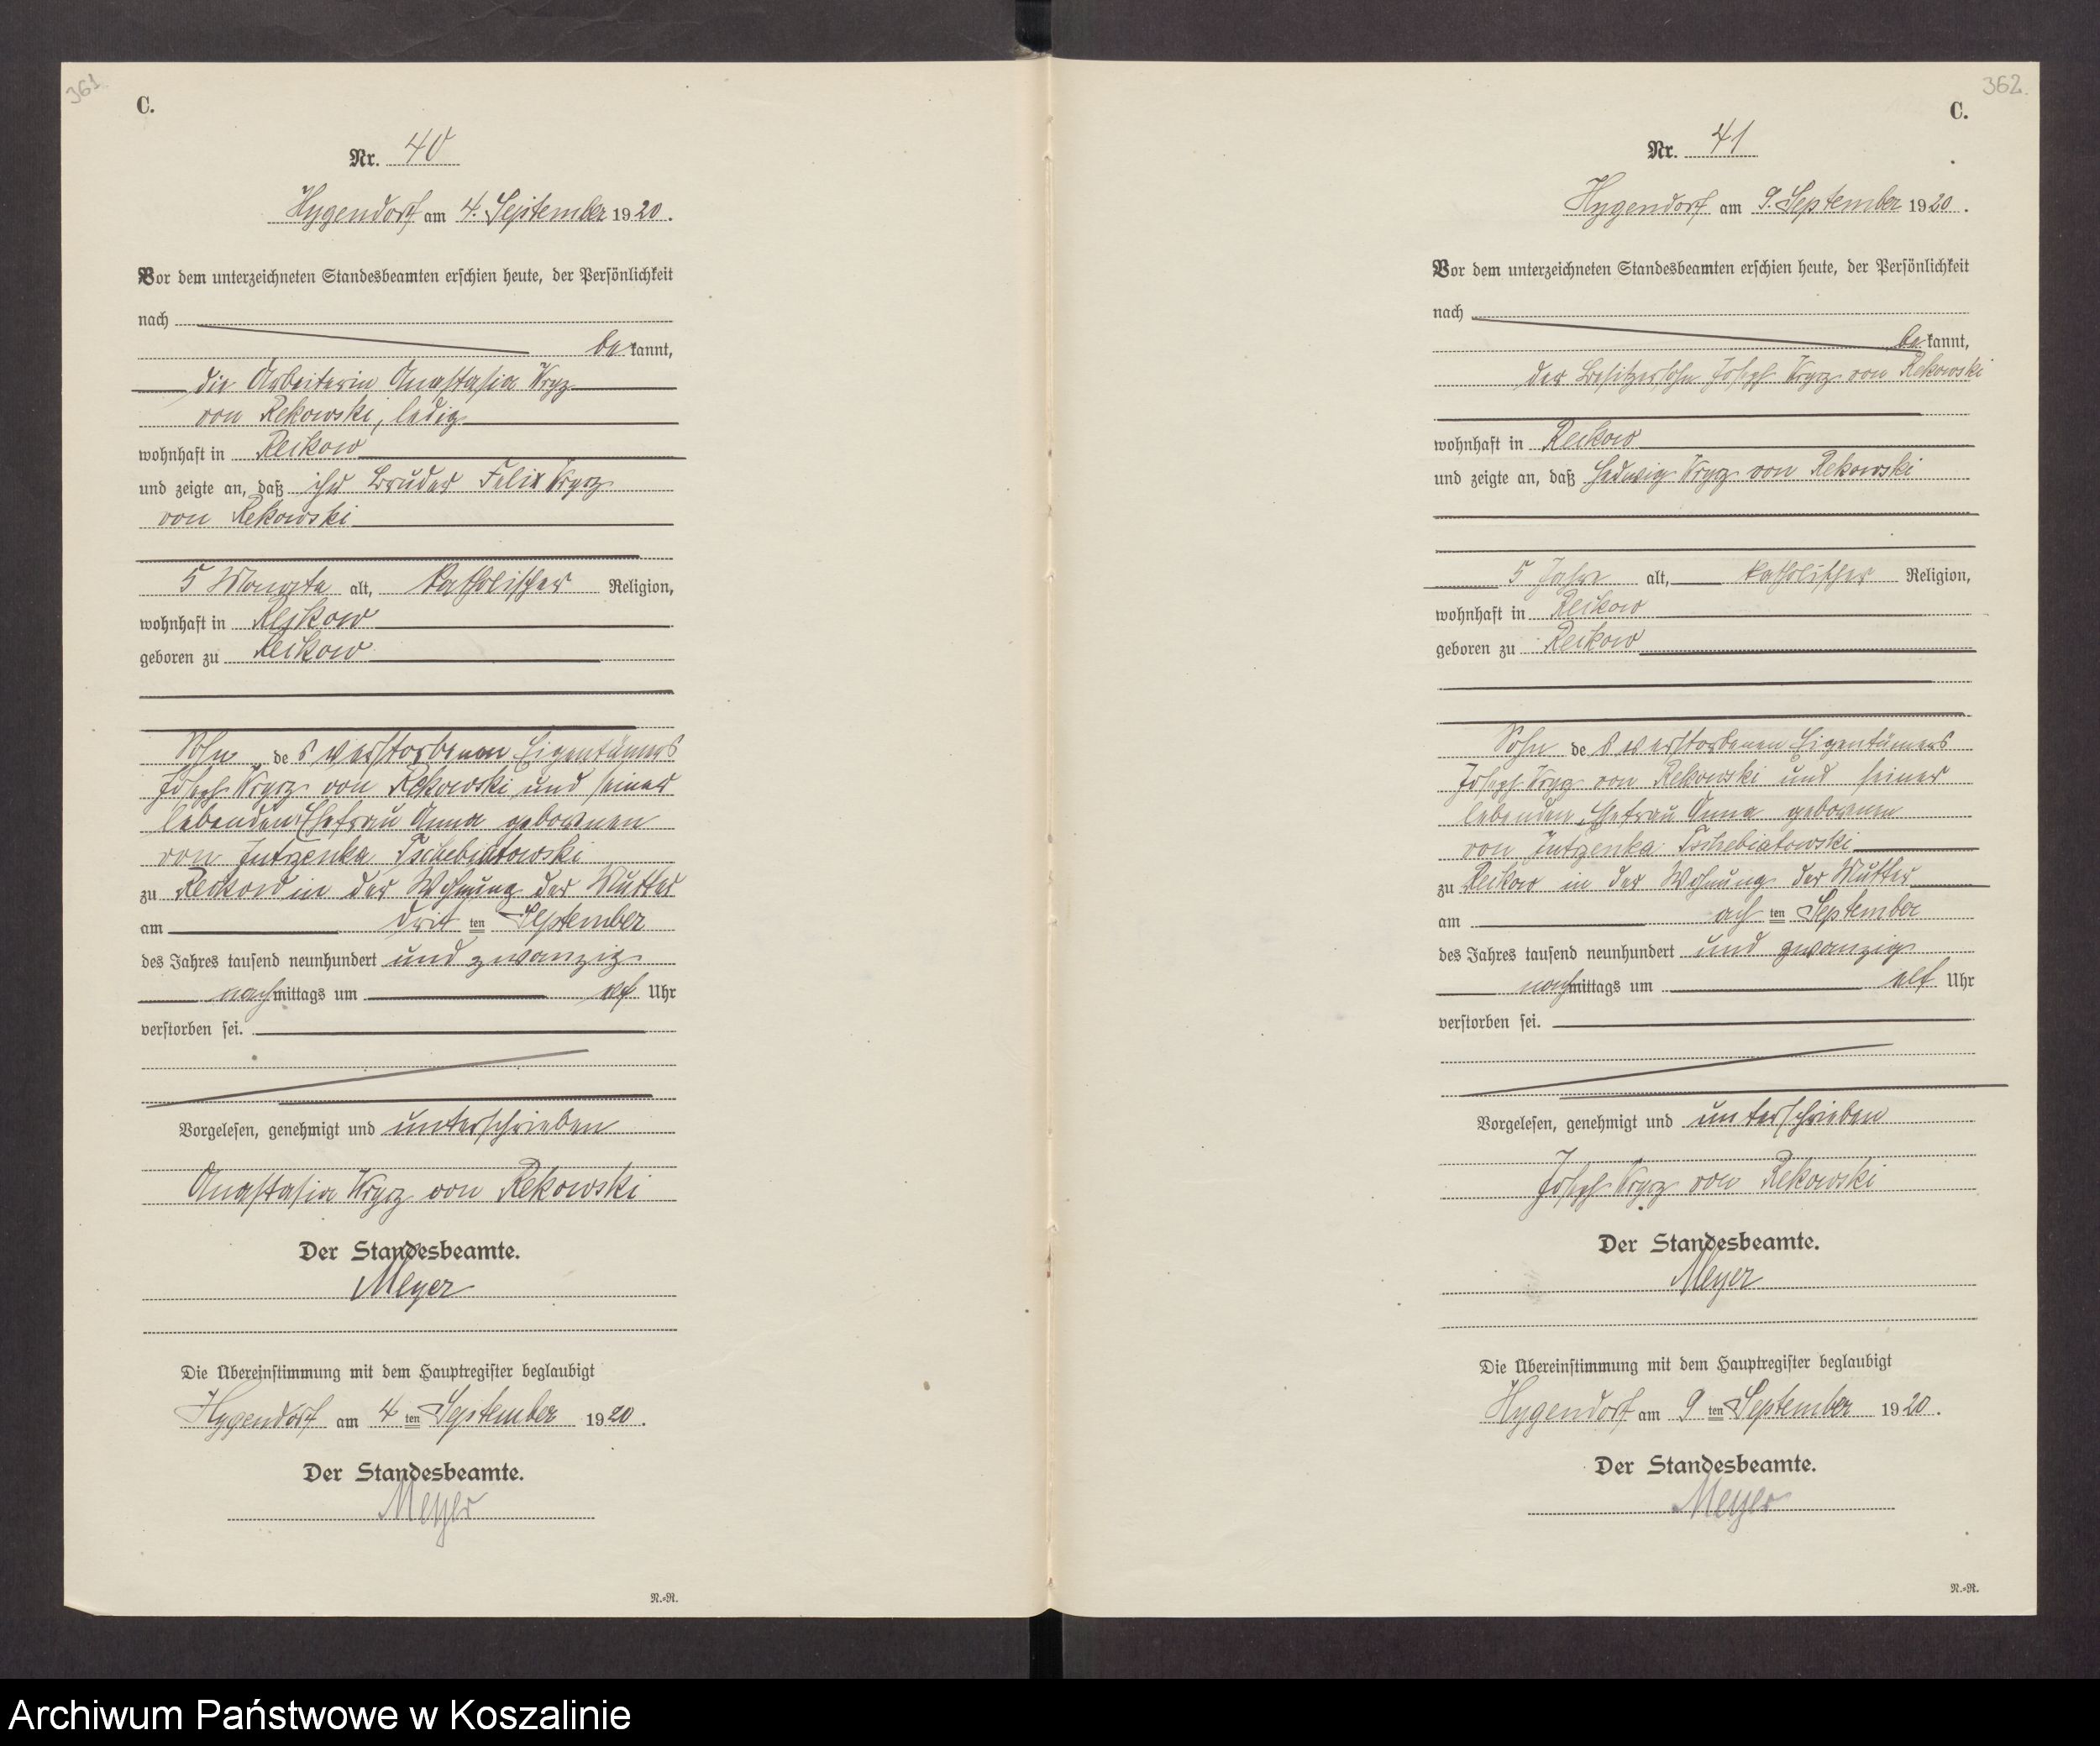 361.
C.
Nr. 40
Hygendorf am 4. September 1920.
Vor dem unterzeichneten Standesbeamten erschien heute, der Persönlichkeit
nach
bekannt,
die Arbeiterin Anastasia Wrycz
von Rekowski, ledig
wohnhaft in Reckow
und zeigte an, daß ihr Bruder Felix Wrycz
von Rekowski
5 Monate alt, katholischer Religion,
wohnhaft in Reckow
geboren zu Reckow
Sohn des verstorbenen Eigentümers
Joseph Wrycz von Rekowski und seiner
lebenden Ehefrau Anna geborenen
von Jutrzenka Tschebiatowski
zu Reckow in der Wohnung der Mutter
am drit ten September
des Jahres tausend neunhundert und zwanzig
nachmittags um Uhr
verstorben sei.
Vorgelesen, genehmigt und unterschrieben
Anastasia Wrycz von Rekowski
Der Standesbeamte.
Meyer
Die Übereinstimmung mit dem Hauptregister beglaubigt
Hygendorf am 4 ten September 1920.
Der Standesbeamte.
Meyer
N.=R.
362.
C.
Nr. 41
Hygendorf am 9. September 1920.
Vor dem unterzeichneten Standesbeamten erschien heute, der Persönlichkeit
nach
bekannt,
der Besitzersohn Joseph Wrycz von Rekowski
wohnhaft in Reckow
und zeigte an, daß Hedwig Wrycz von Rekowski
5 Jahre alt, katholischer Religion,
wohnhaft in Reckow
geboren zu Reckow
Sohn des verstorbenen Eigentümers
Joseph Wrycz von Rekowski und seiner
lebenden Ehefrau Anna geborenen
von Jutrzenka Tschebiatowski
zu Reckow in der Wohnung der Mutter
am ach ten September
des Jahres tausend neunhundert und zwanzig
nachmittags um elf Uhr
verstorben sei.
Vorgelesen, genehmigt und unterschrieben
Joseph Wrycz von Rekowski
Der Standesbeamte.
Meyer
Die Übereinstimmung mit dem Hauptregister beglaubigt
Hygendorf am 9 ten September 1920.
Der Standesbeamte.
Meyer
N.=R.
Archiwum Państwowe w Koszalinie